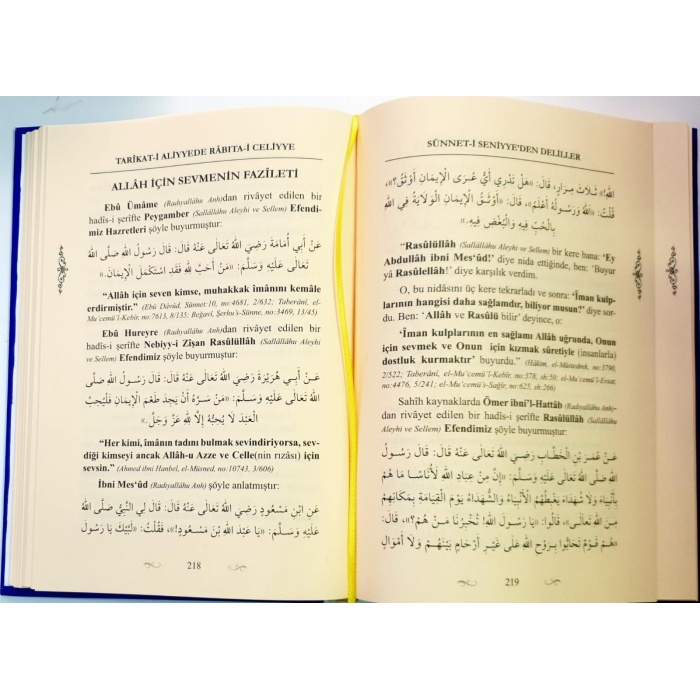 TARÎKAT-İ ALİYYEDE RÂBITA-İ CELİYYE
ALLÂH İÇİN SEVMENİN FAZÎLETİ
Ebû Ümâme (Radıyallâhu Anh)dan rivâyet edilen bir
hadîs-i şerîfte Peygamber (Sallâllâhu Aleyhi ve Sellem) Efendi-
miz Hazretleri şöyle buyurmuştur:
عَنْ أَبِي أُمَامَةَ رَضِيَ اللّٰهُ تَعَالَى عَنْهُ قَالَ: قَالَ رَسُولُ اللّٰهِ صَلَّى اللّٰهُ
تَعَالَى عَلَيْهِ وَسَلَّمَ: «مَنْ أَحَبَّ لِلّٰهِ فَقَدِ اسْتَكْمَلَ الْإِيمَانَ.»
“Allâh için seven kimse, muhakkak îmânını kemâle
erdirmiştir.” (Ebû Dâvûd, Sünnet:10, no:4681, 2/632; Taberânî, el-
Mu‘cemü'l-Kebîr, no:7613, 8/135; Beğavî, Şerhu's-Sünne, no:3469, 13/45)
Ebû Hureyre (Radıyallâhu Anh)dan rivâyet edilen bir
hadîs-i şerîfte Nebiyy-i Zîşan Rasûlüllâh (Sallâllâhu Aleyhi
ve Sellem) Efendimiz şöyle buyurmuştur:
عَنْ أَبِي هُرَيْرَةَ رَضِيَ اللّٰهُ تَعَالَى عَنْهُ قَالَ: قَالَ رَسُولُ اللّٰهِ صَلَّى
اللّٰهُ تَعَالَى عَلَيْهِ وَسَلَّمَ: «مَنْ سَرَّهُ أَنْ يَجِدَ طَعْمَ الْإِيمَانِ فَلْيُحِبَّ
الْعَبْدَ لَا يُحِبُّهُ إِلَّا لِلّٰهِ عَزَّ وَجَلَّ.»
“Her kimi, îmânın tadını bulmak sevindiriyorsa, sev-
diği kimseyi ancak Allâh-u Azze ve Celle(nin rızâsı) için
sevsin.” (Ahmed ibni Hanbel, el-Müsned, no:10743, 3/606)
İbni Mes‘ûd (Radıyallâhu Anh) şöyle anlatmıştır:
عَنِ ابْنِ مَسْعُودٍ رَضِيَ اللّٰهُ تَعَالَى عَنْهُ قَالَ: قَالَ لِي النَّبِيُّ صَلَّى اللّٰهُ
عَلَيْهِ وَسَلَّمَ: «يَا عَبْدَ اللّٰهِ بْنَ مَسْعُودٍ!»، فَقُلْتُ: «لَبَّيْكَ يَا رَسُولَ
218
SÜNNET-İ SENİYYE'DEN DELİLLER
اللّٰهِ! ثَلَاثَ مِرَارٍ، قَالَ: «هَلْ تَدْرِي أَيُّ عُرَى الْإِيمَانِ أَوْثَقُ؟»،
قُلْتُ: «اللّٰهُ وَرَسُولُهُ أَعْلَمُ»، قَالَ: «أَوْثَقُ الْإِيمَانِ الْوَلَايَةُ فِي اللّٰهِ
بِالْحُبِّ فِيهِ وَالْبُغْضِ فِيهِ.»
“Rasûlüllâh (Sallâllâhu Aleyhi ve Sellem) bir kere bana: ‘Ey
Abdullâh ibni Mes‘ûd!’ diye nida ettiğinde, ben: ‘Buyur
yâ Rasûlellâh!’ diye karşılık verdim.
O, bu nidâsını üç kere tekrarladı ve sonra: ‘Îman kulp-
larının hangisi daha sağlamdır, biliyor musun?’ diye sor-
du. Ben: ‘Allâh ve Rasûlü bilir’ deyince, o:
‘Îman kulplarının en sağlamı Allâh uğrunda, Onun
için sevmek ve Onun için kızmak sûretiyle (insanlarla)
dostluk kurmaktır’ buyurdu.” (Hâkim, el-Müstedrek, no:3790,
2/522; Taberânî, el-Mu‘cemü'l-Kebîr, no:378, sh:50; el-Mu‘cemü'l-Evsat,
no:4476, 5/241; el-Mu‘cemü's-Sağîr, no:625, sh:266)
Sahîh kaynaklarda Ömer ibni'l-Hattâb (Radıyallâhu Anh)-
dan rivâyet edilen bir hadîs-i şerîfte Rasûlüllâh (Sallâllâhu
Aleyhi ve Sellem) Efendimiz şöyle buyurmuştur:
عَنْ عُمَرَ بْنِ الْخَطَّابِ رَضِيَ اللّٰهُ تَعَالَى عَنْهُ قَالَ: قَالَ رَسُولُ
اللّٰهِ صَلَّى اللّٰهُ تَعَالَى عَلَيْهِ وَسَلَّمَ: «إِنَّ مِنْ عِبَادِ اللّٰهِ لَأُنَاسًا مَا هُمْ
بِأَنْبِيَاءَ وَلَا شُهَدَاءَ يَغْبِطُهُمُ الْأَنْبِيَاءُ وَالشُّهَدَاءُ يَوْمَ الْقِيَامَةِ بِمَكَانِهِمْ
مِنَ اللّٰهِ تَعَالَى»، قَالُوا: «يَا رَسُولَ اللّٰهِ! تُخْبِرُنَا مَنْ هُمْ؟»، قَالَ:
«هُمْ قَوْمٌ تَحَابُّوا بِرُوحِ اللّٰهِ عَلَى غَيْرِ أَرْحَامٍ بَيْنَهُمْ وَلَا أَمْوَالٍ
219